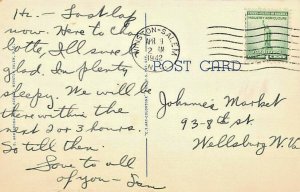 Hi - Last lap
now. Here to Char-
lotte, I'll sure be
glad. Im plenty
sleepy. We will be
there within the
next 2 or 3 hours.
So tell them.
Love to all
of you - Sam
WINSTON-SALEM
APR
2 AM
1942
POST CARD
UNITED STATES OF AMERICA
INDUSTRY AGRICULTURE
FOR DEFENSE
Johnie's Market
93-8th St.
Wellsburg W. Va